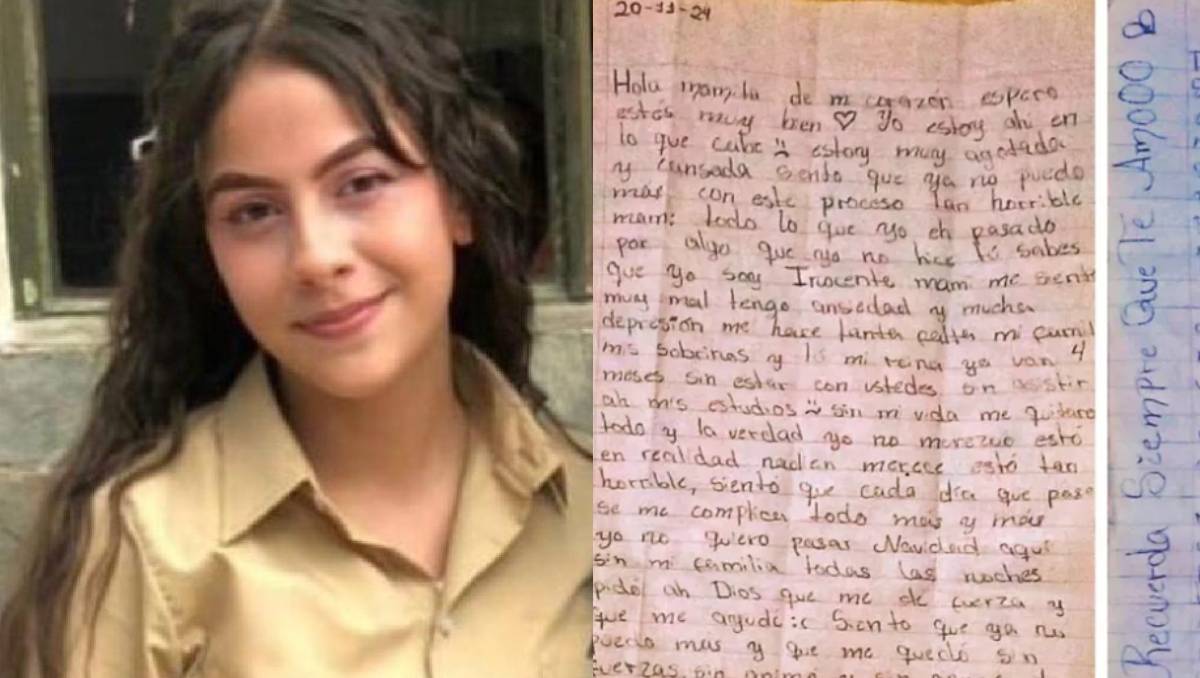 20-11-24
Hola mamita de mi corazón espero
estés muy bien ♡ Yo estoy ahi en
lo que cabe estoy muy agotada
y cansada siento que ya no puedo
más con este proceso tan horrible
mami todo lo que yo eh pasado
por algo que yo no hice tú sabes
que yo soy Inocente mami me siento
muy mal tengo ansiedad y mucha
depresión me hace tanta falta mi
mis sobrinas y tú mi reina ya van 4
meses sin estar con ustedes sin asistir
ah mis estudios sin mi vida me quitaro
todo y la verdad yo no merezco estó
en realidad nadien merece estó tan
horrible, siento que cada día que pasa
se me complica todo más y más
yo no quiero pasar Navidad aquí
sin mi familia todas las noches
pido ah Dios que me de fuerza y
que me ayude :c Siento que ya no
puedo mas y que me quedó sin
fuerzas sin animo y sin
Recuerda Siempre Que Te Amooo